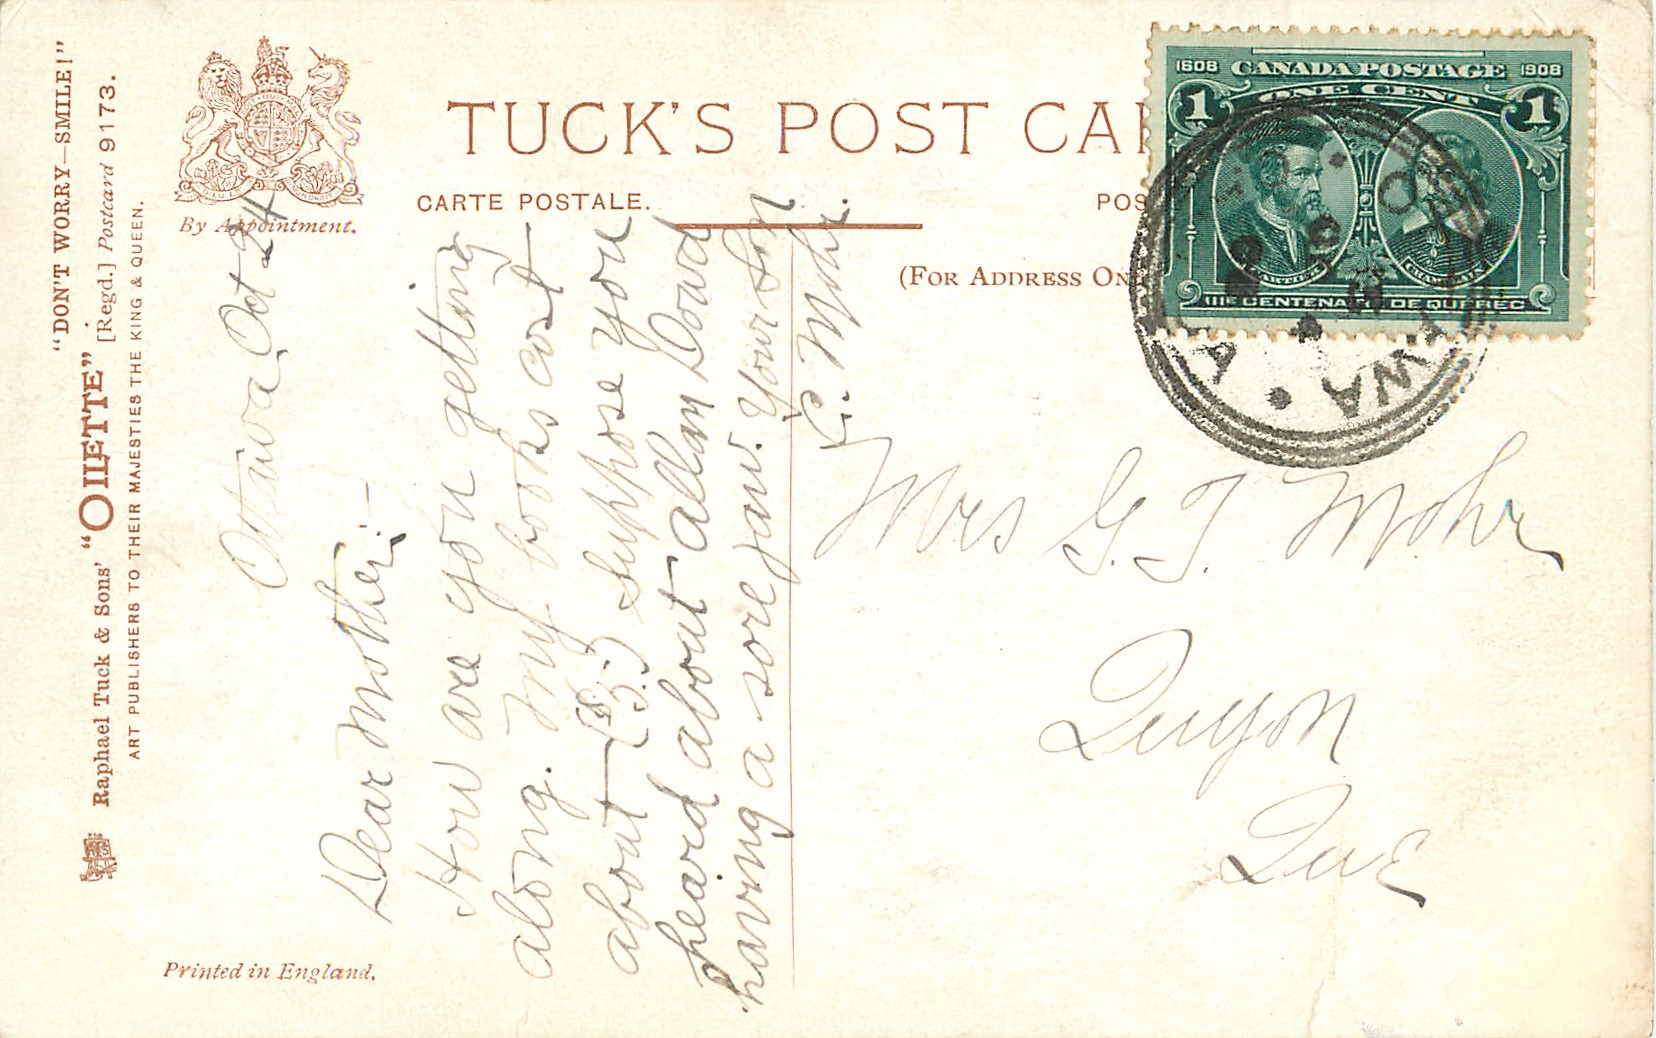 "DON'T WORRY—SMILE!"
Raphael Tuck & Sons' "OILETTE" [Regd.] Postcard 9173.
ART PUBLISHERS TO THEIR MAJESTIES THE KING & QUEEN.
By Appointment.
Printed in England.
TUCK'S POST CAR
CARTE POSTALE.
POS
(FOR ADDRESS ON
1608 CANADA POSTAGE 1908
1 ONE CENT 1
CARTIER CHAMPLAIN
IIIe CENTENAIRE DE QUEBEC
Ottawa Oct 24
Dear Mother:—
How are you getting
along. My books cost
about ($5.) suppose you
heard about Allan Dowd
having a sore jaw. Your Son
C. Mohr.
Mrs G. T. Mohr
Quyon
Que